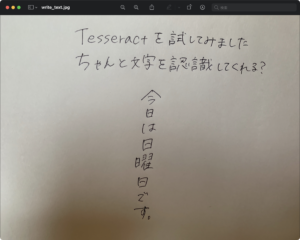 write_test.jpg
Tesseractを試してみました
ちゃんと文字を認識してくれる?
今日は日曜日です。